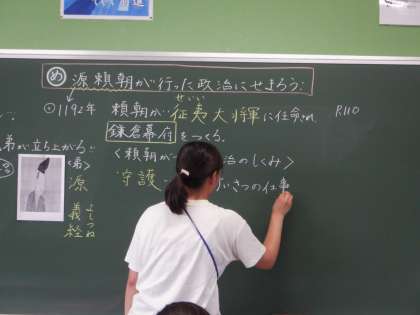 め 源頼朝が行った政治にせまろう!
1192年 頼朝が…征夷大将軍に任命され P.110
せいい
鎌倉幕府をつくる。
<頼朝が 治のしくみ>
守護 いさつの仕事
弟が立ち上がる!
<弟>
源
義経
よしつね